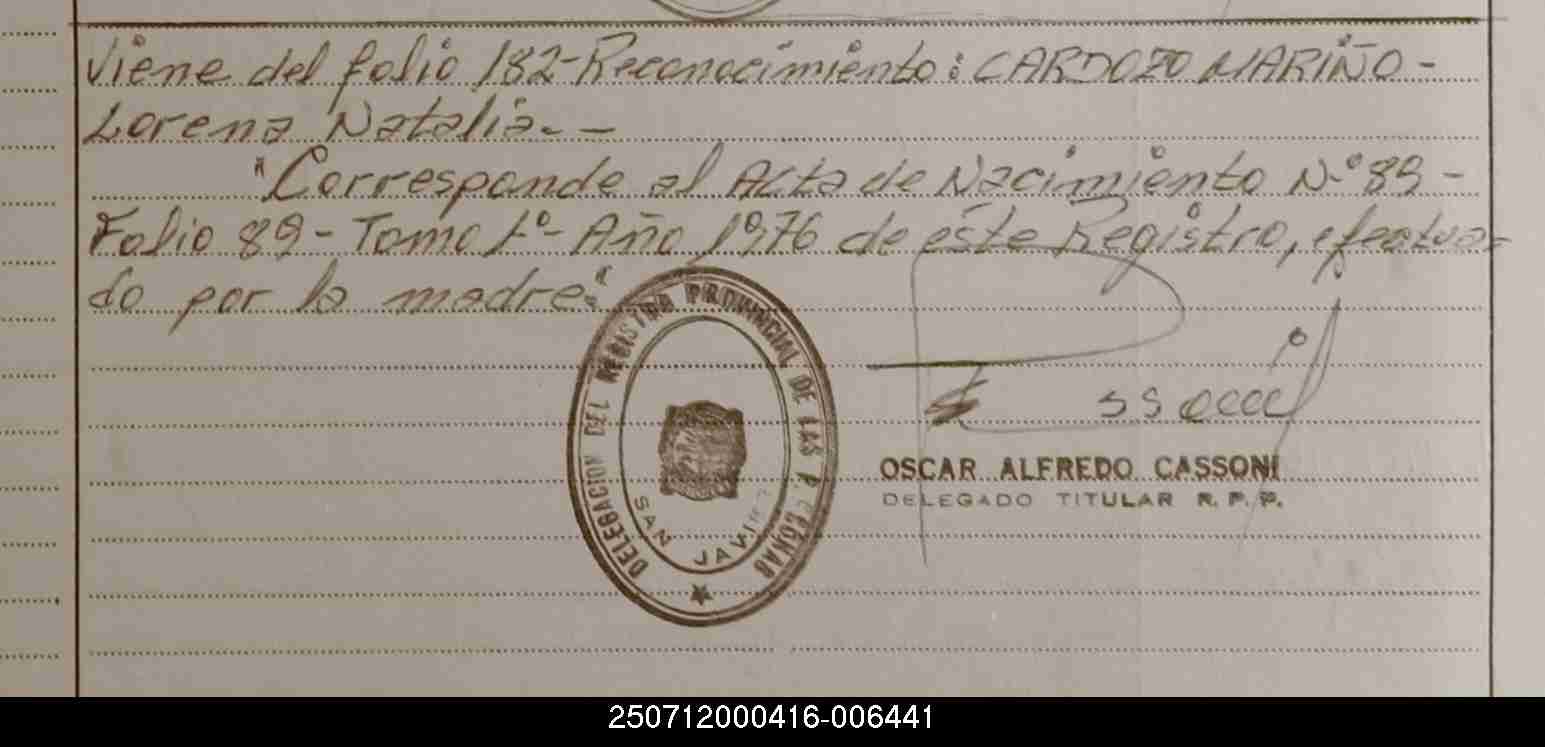 Viene del folio 182-Reconocimiento: CARDOZO MARIÑO-
Lorena Natalia.-
"Corresponde al Acta de Nacimiento N.° 89-
Folio 89- Tomo 1°- Año 1976 de éste Registro, efectua-
do por la madre."
DELEGACION DEL REGISTRO PROVINCIAL DE LAS PERSONAS
SAN JAVIER
OSCAR ALFREDO CASSONI
DELEGADO TITULAR R. P. P.
250712000416-006441